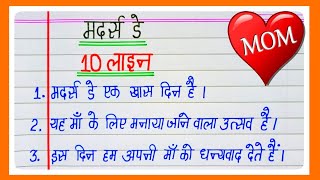 मदर्स डे
10 लाइन
MOM
1. मदर्स डे एक खास दिन है।
2. यह माँ के लिए मनाया जाने वाला उत्सव है।
3. इस दिन हम अपनी माँ को धन्यवाद देते हैं।